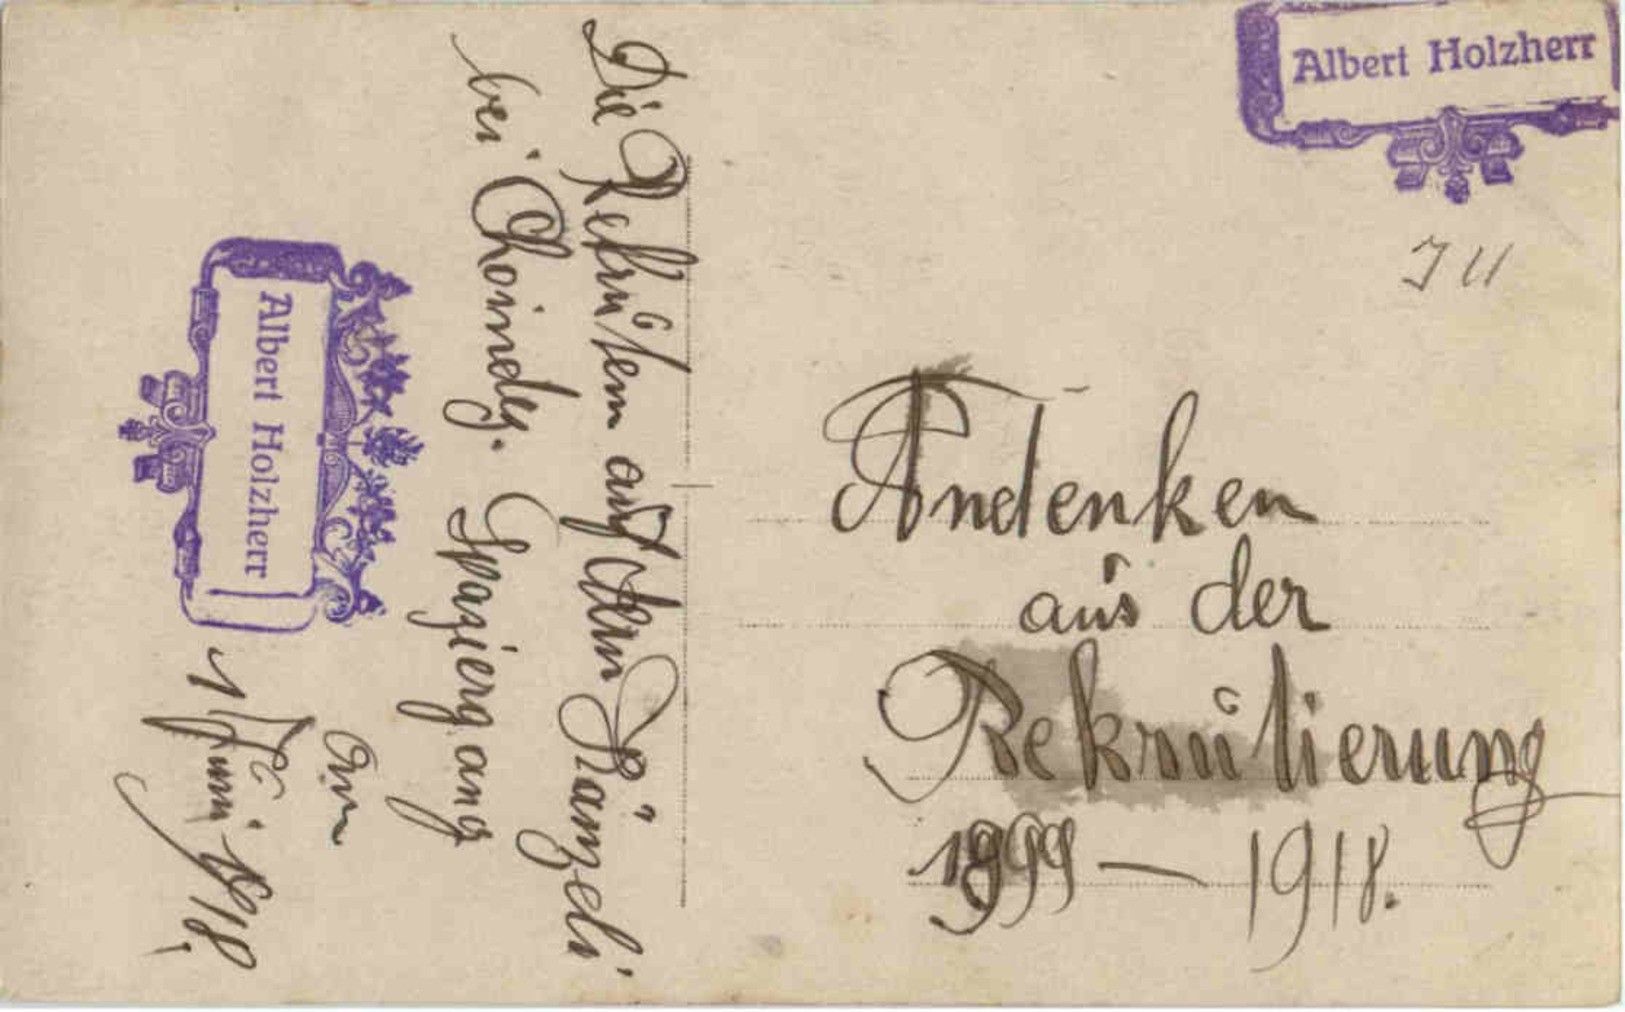 Albert Holzherr
Andenken
aus der
Rekrutierung
1899 — 1918.
Die Rekruten auf dem Stänzeli
bei
Spazierg ang
am
1 Juni 1918.
Albert Holzherr